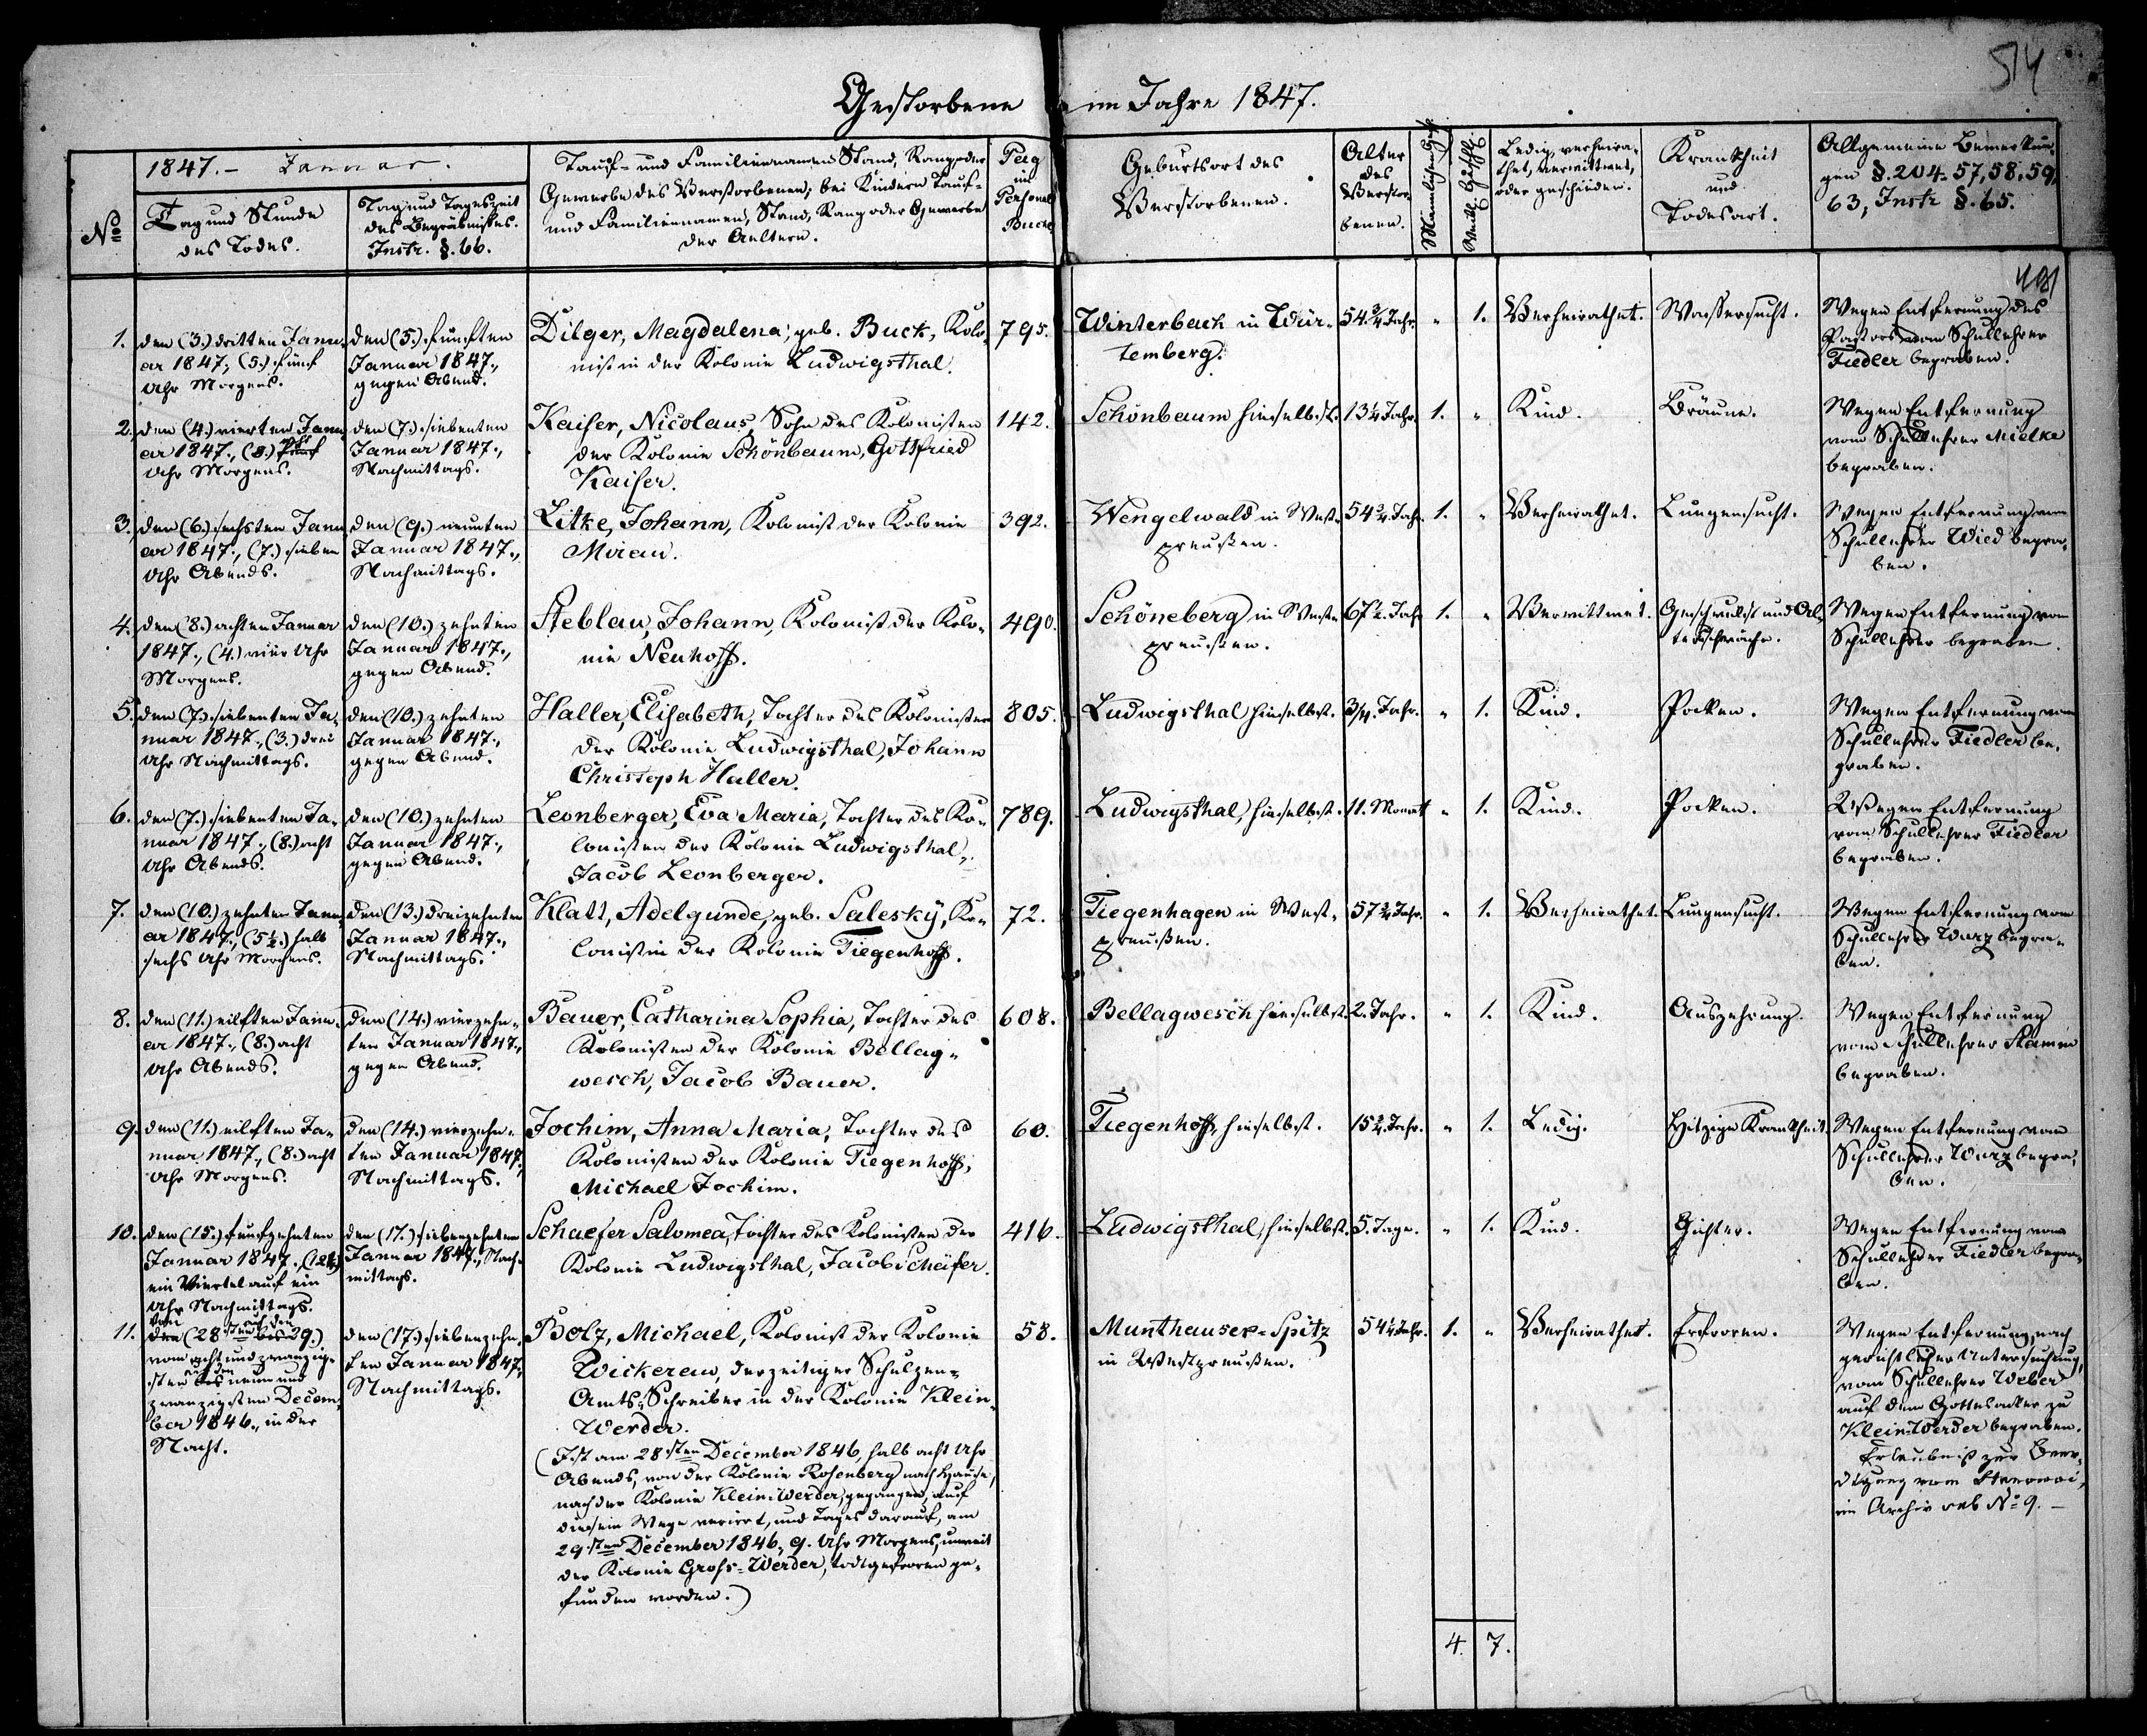 514
Gestorbene im Jahre 1847.
No
1847.- Januar.
Tag und Stunde
des Todes.
Tag und Tageszeit
des Begräbnisses.
Instr. §. 66.
Tauf- und Familiennamen, Stand, Rang oder
Gewerbe des Verstorbenen; bei Kindern Tauf-
und Familiennamen, Stand, Rang oder Gewerbe
der Aeltern.
Pag
im
Personal
Buche
Geburtsort des
Verstorbenen.
Alter
des
Verstor-
benen.
Männlichen Gesch.
Weibl. Geschl.
Ledig, verheira-
thet, verwittwet,
oder geschieden.
Krankheit
und
Todesart.
Allgemeine Bemerkun-
gen §. 204. 57, 58, 59,
63, Instr. §. 65.
1.
den (3.) dritten Janu-
ar 1847., (5.) fünf
Uhr Morgens.
den (5.) fünften
Januar 1847.,
gegen Abend.
Dilger, Magdalena, geb. Buck, Kolo-
nist in der Kolonie Ludwigsthal.
795.
Winterbach in Wür-
temberg.
54.¾ Jahr.
"
1.
Verheirathet.
Wassersucht.
Wegen Entfernung des
Pastors vom Schullehrer
Fiedler begraben.
2.
den (4.) vierten Janu-
ar 1847., (8.)
Uhr Morgens.
den (7.) siebenten
Januar 1847.,
Nachmittags.
Kaiser, Nicolaus, Sohn des Kolonisten
der Kolonie Schönbaum, Gottfried
Kaiser.
142.
Schönbaum hieselbst.
13¼ Jahr.
1.
"
Kind.
Bräune.
Wegen Entfernung
vom Schullehrer Mielke
begraben.
3.
den (6.) sechsten Janu-
ar 1847., (7.) sieben
Uhr Abends.
den (9.) neunten
Januar 1847.,
Nachmittags.
Litke, Johann, Kolonist der Kolonie
Mirau.
392.
Wengelwald in West-
preußen.
54¾ Jahr.
1.
"
Verheirathet.
Lungensucht.
Wegen Entfernung vom
Schullehrer Wied begra-
ben.
4.
den (8.) achten Januar
1847., (4.) vier Uhr
Morgens.
den (10.) zehnten
Januar 1847.,
gegen Abend.
Steblau, Johann, Kolonist der Kolo-
nie Neuhoff.
490.
Schöneberg in West-
preußen.
67½ Jahr
1.
"
Verwittwet.
Geschwulst und Al-
tersschwäche.
Wegen Entfernung vom
Schullehrer begraben.
5.
den (7.) siebenten Ja-
nuar 1847., (3.) drei
Uhr Nachmittags.
den (10.) zehnten
Januar 1847.,
gegen Abend.
Haller, Elisabeth, Tochter des Kolonisten
der Kolonie Ludwigsthal, Johann
Christoph Haller.
805.
Ludwigsthal hieselbst.
3/4. Jahr.
"
1.
Kind.
Pocken.
Wegen Entfernung vom
Schullehrer Fiedler be-
graben.
6.
den (7.) siebenten Ja-
nuar 1847., (8.) acht
Uhr Abends.
den (10.) zehnten
Januar 1847.,
gegen Abend.
Leonberger, Eva Maria, Tochter des Ko-
lonisten der Kolonie Ludwigsthal,
Jacob Leonberger.
789.
Ludwigsthal, hieselbst.
11. Monat
"
1.
Kind.
Pocken.
Wegen Entfernung
vom Schullehrer Fiedler
begraben.
7.
den (10.) zehnten Janu-
ar 1847., (5½.) halb
sechs Uhr Morgens.
den (13.) dreizehnten
Januar 1847.,
Nachmittags.
Klatt, Adelgunde, geb. Salesky, Ko-
lonistin der Kolonie Tiegenhoff.
72.
Tiegenhagen in West-
preußen.
57¾ Jahr.
"
1.
Verheirathet.
Lungensucht.
Wegen Entfernung vom
Schullehrer Wurz begra-
ben.
8.
den (11.) eilften Janu-
ar 1847., (8.) acht
Uhr Abends.
den (14.) vierzehn-
ten Januar 1847.,
gegen Abend.
Bauer, Catharina Sophia, Tochter des
Kolonisten der Kolonie Bellag-
wesch, Jacob Bauer.
608.
Bellagwesch hieselbst.
2. Jahr.
"
1.
Kind.
Auszehrung.
Wegen Entfernung
vom Schullehrer Stamm
begraben.
9.
den (11.) eilften Ja-
nuar 1847., (8.) acht
Uhr Morgens.
den (14.) vierzehn-
ten Januar 1847.,
Nachmittags.
Jochim, Anna Maria, Tochter des
Kolonisten der Kolonie Tiegenhoff,
Michael Jochim.
60.
Tiegenhoff, hieselbst.
15¾ Jahr.
"
1.
Ledig.
Hitzige Krankheit.
Wegen Entfernung vom
Schullehrer Wurz begra-
ben.
10.
den (15.) fünfzehnten
Januar 1847. (12¼)
ein Viertel auf ein
Uhr Nachmittags.
den (17.) siebenzehnten
Januar 1847., Nach-
mittags.
Schaefer Salomea, Tochter des Kolonisten der
Kolonie Ludwigsthal, Jacob Schäfer.
416.
Ludwigsthal, hieselbst.
5. Tage.
"
1.
Kind.
Gichter.
Wegen Entfernung vom
Schullehrer Fiedler begra-
ben.
11.
vom auf den
den (28sten bis 29.)
vom acht und zwanzig-
sten bis neun und
zwanzigsten Decem-
ber 1846., in der
Nacht.
den (17.) siebenzehn-
ten Januar 1847.,
Nachmittags.
Bolz, Michael, Kolonist der Kolonie
Wickerau, derzeitiger Schulzen-
Amts-Schreiber in der Kolonie Klein-
Werder.
(Ist am 28sten December 1846, halb acht Uhr
Abends, von der Kolonie Rosenberg nach Hause,
nach der Kolonie Klein-Werder, gegangen, auf
diesem Wege verirrt, und Tages darauf, am
29sten December 1846, 9. Uhr Morgens, unweit
der Kolonie Gross-Werder, todtgefroren ge-
funden worden.)
58.
Munthauser-Spitz
in Westpreußen.
54¼ Jahr.
1.
"
Verheirathet.
Erfroren.
Wegen Entfernung nach
gerichtlicher Untersuchung,
vom Schullehrer Weber
auf dem Gottesacker zu
Klein-Werder begraben.
Erlaubniß zur Beer-
digung vom
im Archiv sub No 9. -
4. 7.